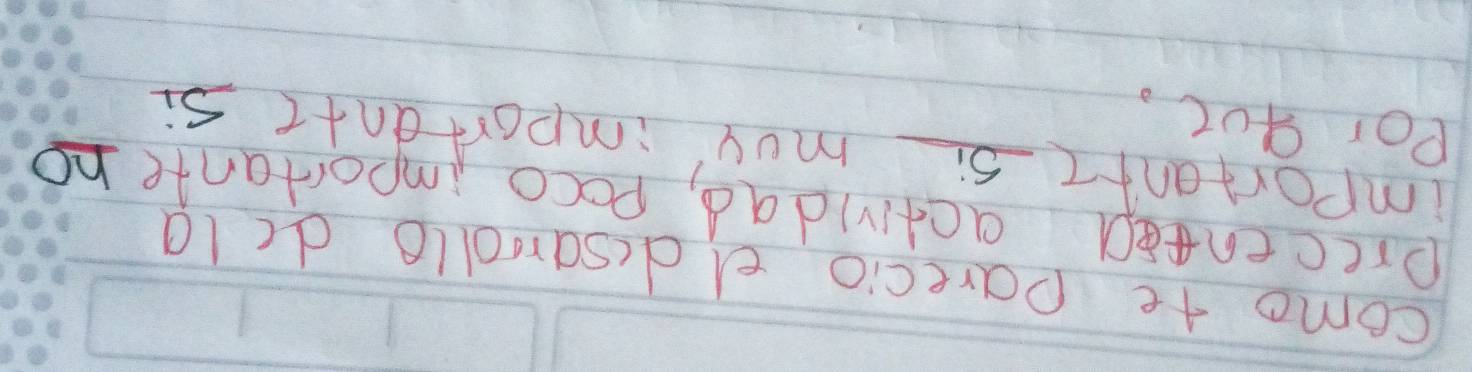 como te parecio el desarrollo de la
precenta actividad, poco importante no
importante si muy importante si
Por que.